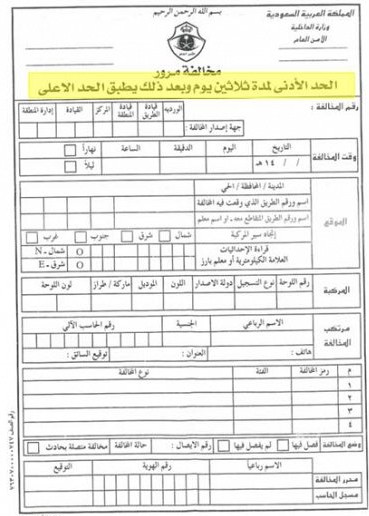 بسم الله الرحمن الرحيم
المملكة العربية السعودية
وزارة الداخلية
الأمن العام
مخالفة مرور
الحد الأدنى لمدة ثلاثين يوم وبعد ذلك يطبق الحد الاعلى
رقم المخالفة: الورديه قيادة الطريق قيادة المنطقة المركز القيادة إدارة المنطقة
جهة إصدار المخالفة:
وقت المخالفة التاريخ اليوم الدقيقة الساعة نهاراً
/ / ١٤هـ ليلاً
الموقع
المدينة / المحافظة / الحي
اسم ورقم الطريق الذي وقعت فيه المخالفة
اسم ورقم الطريق المتقاطع معه ـ او اسم معلم
إتجاه سير المركبة شمال شرق جنوب غرب
قراءة الإحداثيات O شمال ـ N
العلامة الكيلومترية أو معلم بارز O شرق ـ E
المركبة رقم اللوحة نوع التسجيل دولة الاصدار اللون الموديل ماركة / طراز لون اللوحة
مرتكب المخالفة الاسم الرباعي الجنسية رقم الحاسب الآلي
هاتف: العنوان: توقيع السائق:
م رمز المخالفة الفئة نوع المخالفة
١
٢
٣
٤
وضع المخالفة فصل فيها لم يفصل فيها رقم الايصال: حالة المخالفة مخالفة متصلة بحادث
اسم رباعياً رقم الهوية التوقيع
محرر المخالفة
مسجل الحاسب